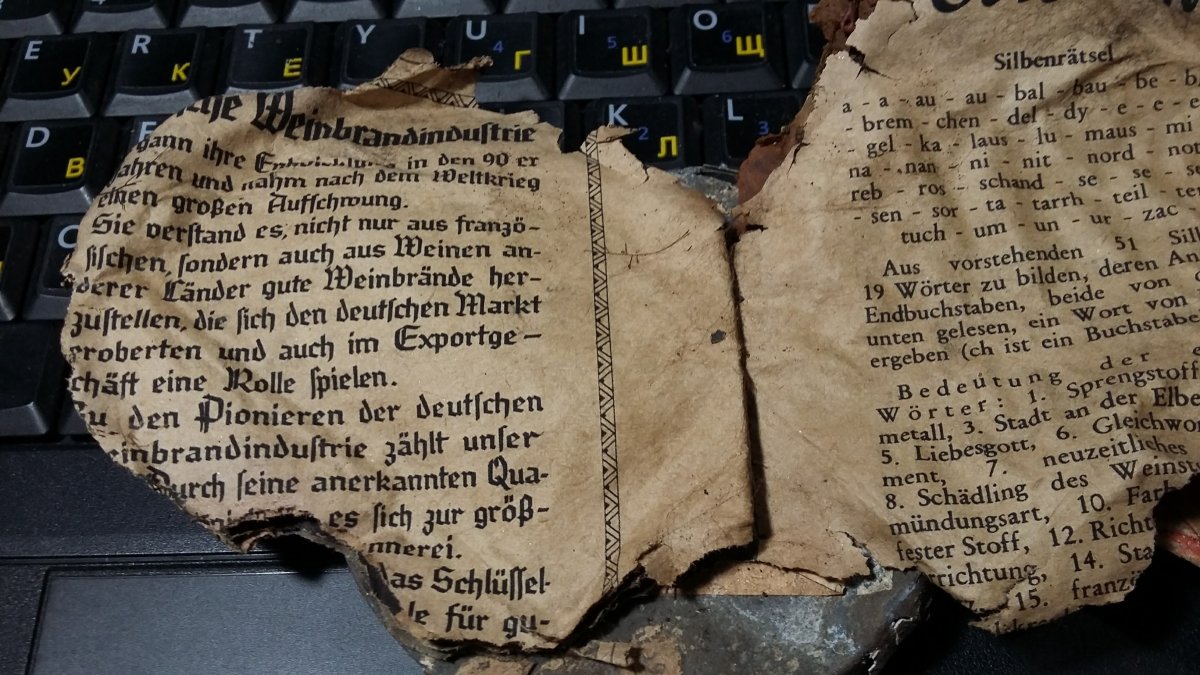 che Weinbrandindustrie
gann ihre Entwicklung in den 90 er
ahren und nahm nach dem Weltkrieg
einen großen Aufschwung.
Sie verstand es, nicht nur aus franzö-
sischen, sondern auch aus Weinen an-
derer Länder gute Weinbrände her-
zustellen, die sich den deutschen Markt
eroberten und auch im Exportge-
chäft eine Rolle spielen.
Zu den Pionieren der deutschen
einbrandindustrie zählt unser
Durch seine anerkannten Qua-
es sich zur größ-
nnerei.
das Schlüssel-
le für gu-
Silbenrätsel
a - a - au - au - bal - bau - be - b
- brem - chen - del - dy - e - e - e
- gel - ka - laus - lu - maus - mi
na - nan - ni - nit - nord - not
reb - ros - schand - se - se - s
- sen - sor - ta - tarrh - teil - te
tuch - um - un - ur - zac
Aus vorstehenden 51 Silb
19 Wörter zu bilden, deren An
Endbuchstaben, beide von
unten gelesen, ein Wort von
ergeben (ch ist ein Buchstabe
Bedeutung der
Wörter: 1. Sprengstoff
metall, 3. Stadt an der Elbe
5. Liebesgott, 6. Gleichwor
ment, 7. neuzeitliches
8. Schädling des Weinst
mündungsart, 10. Farb
fester Stoff, 12. Richt
rrichtung, 14. Sta
z, 15. franzö
E У
R К
T Е
Y
U 4 Г
I 5 Ш
O 6 Щ
D В
F
K 2 Л
L 3